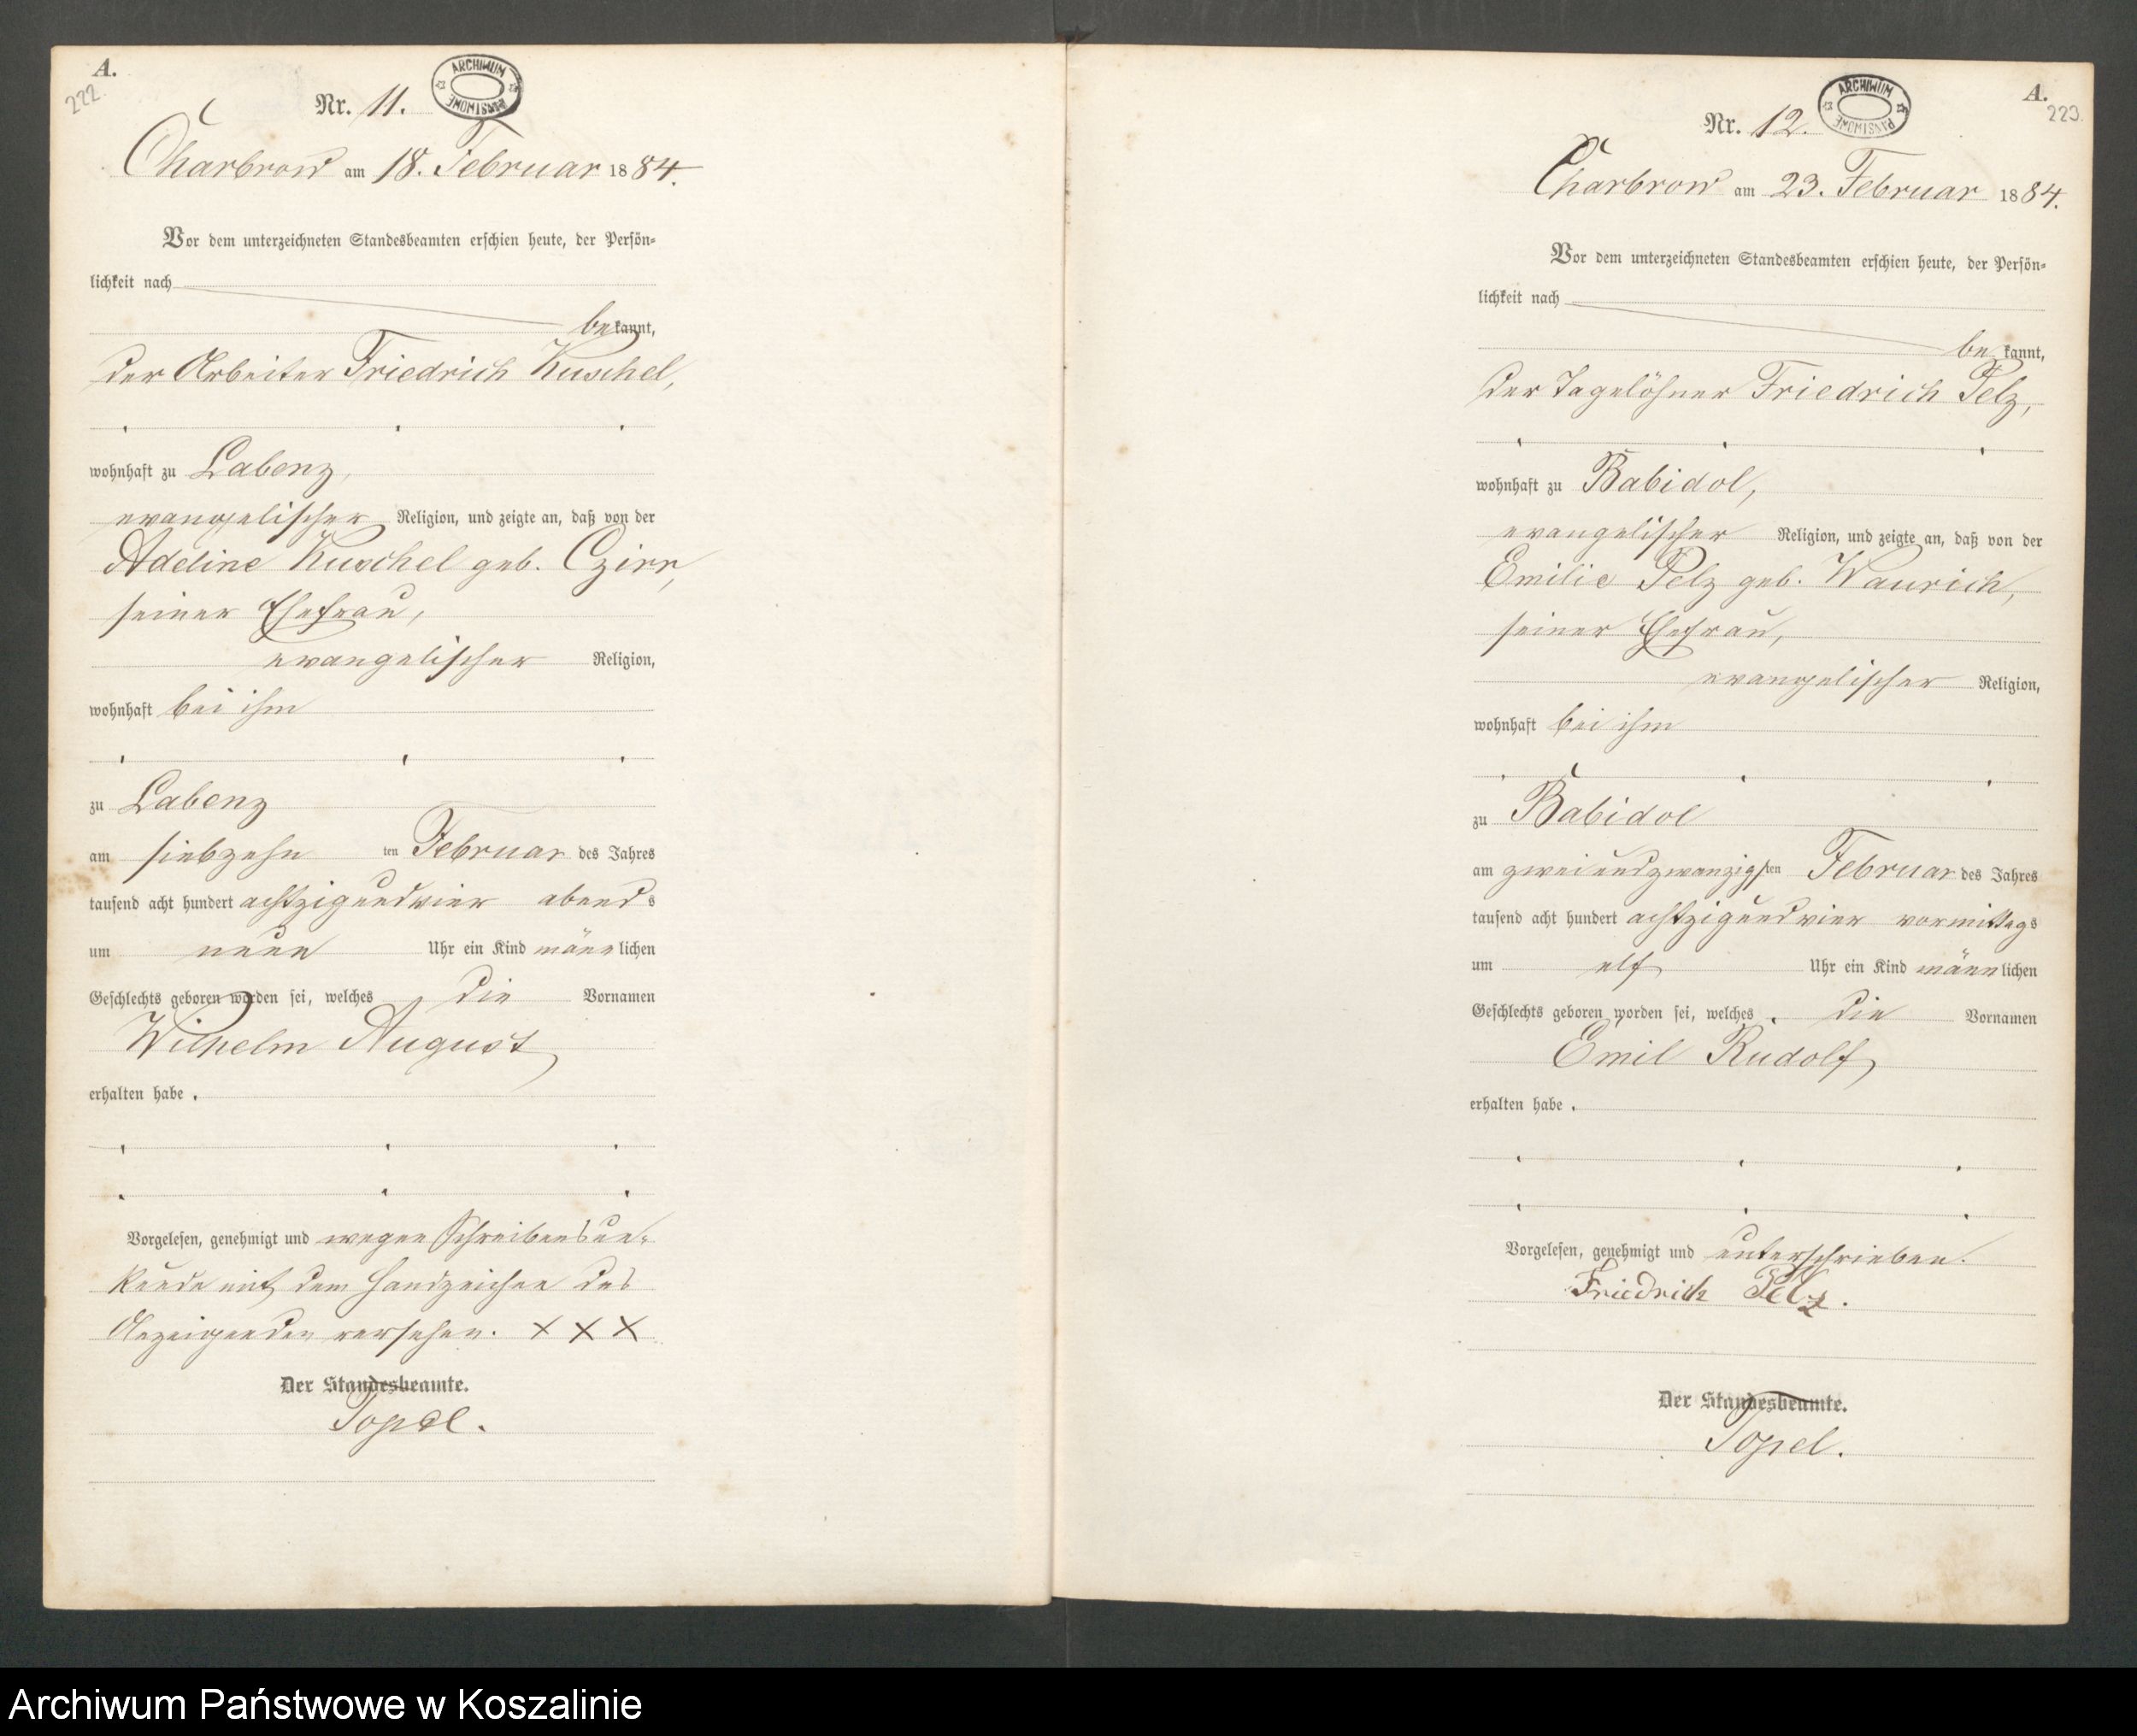 A.
222.
Nr. 11.
ARCHIWUM PAŃSTWOWE
Charbrow am 18. Februar 1884.
Vor dem unterzeichneten Standesbeamten erschien heute, der Persön-
lichkeit nach
bekannt,
der Arbeiter Friedrich Kuschel,
wohnhaft zu Labenz,
evangelischer Religion, und zeigte an, daß von der
Adeline Kuschel geb. Czirr,
seiner Ehefrau,
evangelischer Religion,
wohnhaft bei ihm
zu Labenz
am siebzehn ten Februar des Jahres
tausend acht hundert achtzig und vier abends
um neun Uhr ein Kind männlichen
Geschlechts geboren worden sei, welches die Vornamen
Wilhelm August
erhalten habe.
Vorgelesen, genehmigt und wegen Schreibensun-
kunde mit dem Handzeichen des
Anzeigenden versehen. X X X
Der Standesbeamte.
Topel.
A.
223.
Nr. 12.
ARCHIWUM PAŃSTWOWE
Charbrow am 23. Februar 1884.
Vor dem unterzeichneten Standesbeamten erschien heute, der Persön-
lichkeit nach
bekannt,
der Tagelöhner Friedrich Pelz,
wohnhaft zu Babidol,
evangelischer Religion, und zeigte an, daß von der
Emilie Pelz geb. Waurich,
seiner Ehefrau,
evangelischer Religion,
wohnhaft bei ihm
zu Babidol
am zweiundzwanzigsten Februar des Jahres
tausend acht hundert achtzig und vier vormittags
um elf Uhr ein Kind männlichen
Geschlechts geboren worden sei, welches die Vornamen
Emil Rudolf
erhalten habe.
Vorgelesen, genehmigt und unterschrieben.
Friedrich Pelz.
Der Standesbeamte.
Topel.
Archiwum Państwowe w Koszalinie